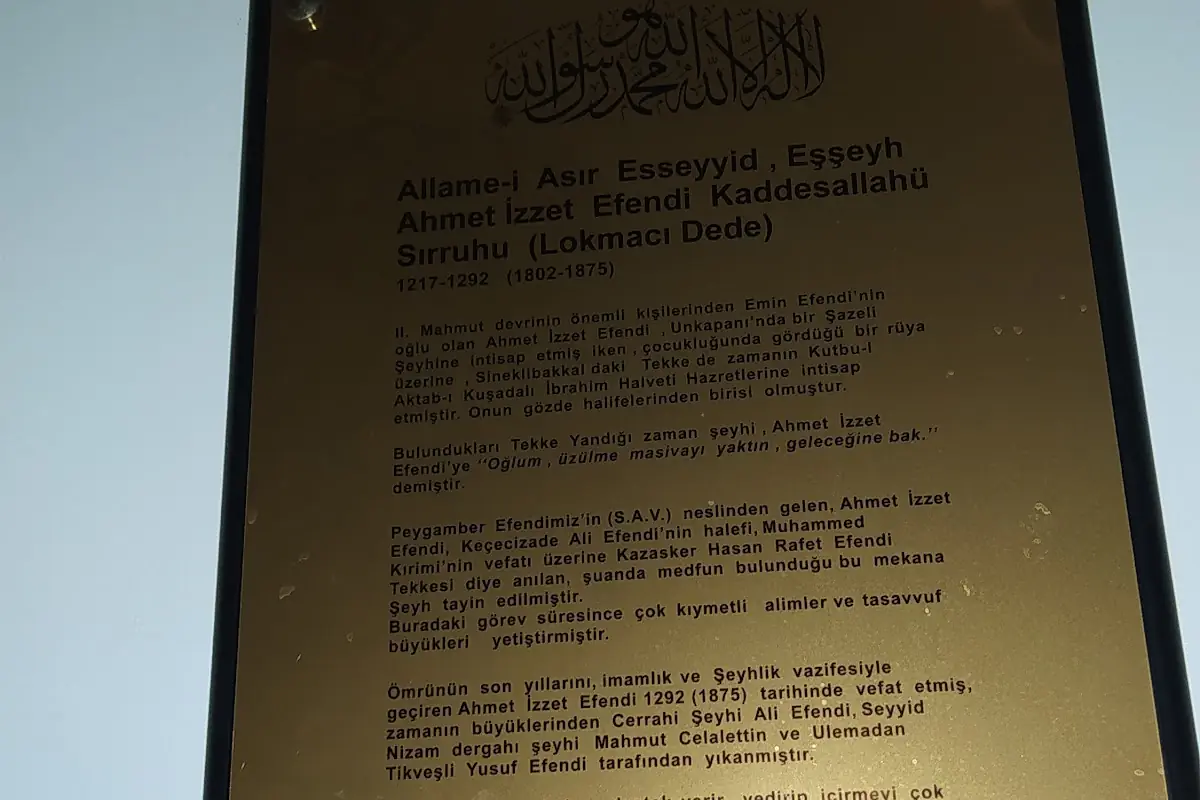 هو
لا اله الا الله محمد رسول الله
Allame-i Asır Esseyyid , Eşşeyh
Ahmet İzzet Efendi Kaddesallahü
Sırruhu (Lokmacı Dede)
1217-1292 (1802-1875)
II. Mahmut devrinin önemli kişilerinden Emin Efendi'nin
oğlu olan Ahmet İzzet Efendi , Unkapanı'nda bir Şazeli
Şeyhine intisap etmiş iken , çocukluğunda gördüğü bir rüya
üzerine , Sineklibakkal daki Tekke de zamanın Kutbu-l
Aktab-ı Kuşadalı İbrahim Halveti Hazretlerine intisap
etmiştir. Onun gözde halifelerinden birisi olmuştur.
Bulundukları Tekke Yandığı zaman şeyhi , Ahmet İzzet
Efendi'ye "Oğlum , üzülme masivayı yaktın , geleceğine bak."
demiştir.
Peygamber Efendimiz'in (S.A.V.) neslinden gelen, Ahmet İzzet
Efendi, Keçecizade Ali Efendi'nin halefi, Muhammed
Kırimi'nin vefatı üzerine Kazasker Hasan Rafet Efendi
Tekkesi diye anılan, şuanda medfun bulunduğu bu mekana
Şeyh tayin edilmiştir.
Buradaki görev süresince çok kıymetli alimler ve tasavvuf
büyükleri yetiştirmiştir.
Ömrünün son yıllarını, imamlık ve Şeyhlik vazifesiyle
geçiren Ahmet İzzet Efendi 1292 (1875) tarihinde vefat etmiş,
zamanın büyüklerinden Cerrahi Şeyhi Ali Efendi, Seyyid
Nizam dergahı şeyhi Mahmut Celalettin ve Ulemadan
Tikveşli Yusuf Efendi tarafından yıkanmıştır.
yedirip içirmeyi çok